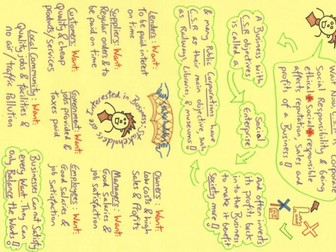 social responsibility. Being
social & responsible
affects reputation sales and
profits of a Business!!
A Business with
C.S.R objectives
is called a
Social
Enterprise
And often invest
its profits back
to the Business
to make it benefit
Society more!!
& many Public Corporations have
C.S.R as their main objective such
as Railways, Libraries & museums!!
Stakeholders are
Interested in Business
Owners: Want:
Low costs & high
Sales & Profits
Managers: Want:
Good salaries &
job satisfaction
Employees: Want:
Good Salaries &
job satisfaction
Businesses Cannot Satisfy
every Want. They can
only Balance the Wants!!
Lenders: Want:
To be paid interest
on time
Suppliers: Want:
Regular orders & to
be paid on time
Customers: Want:
Quality & cheap
products/services
Government: Want:
jobs provided &
taxes paid
Local Community: Want:
Quality jobs & facilities &
no air/traffic Pollution